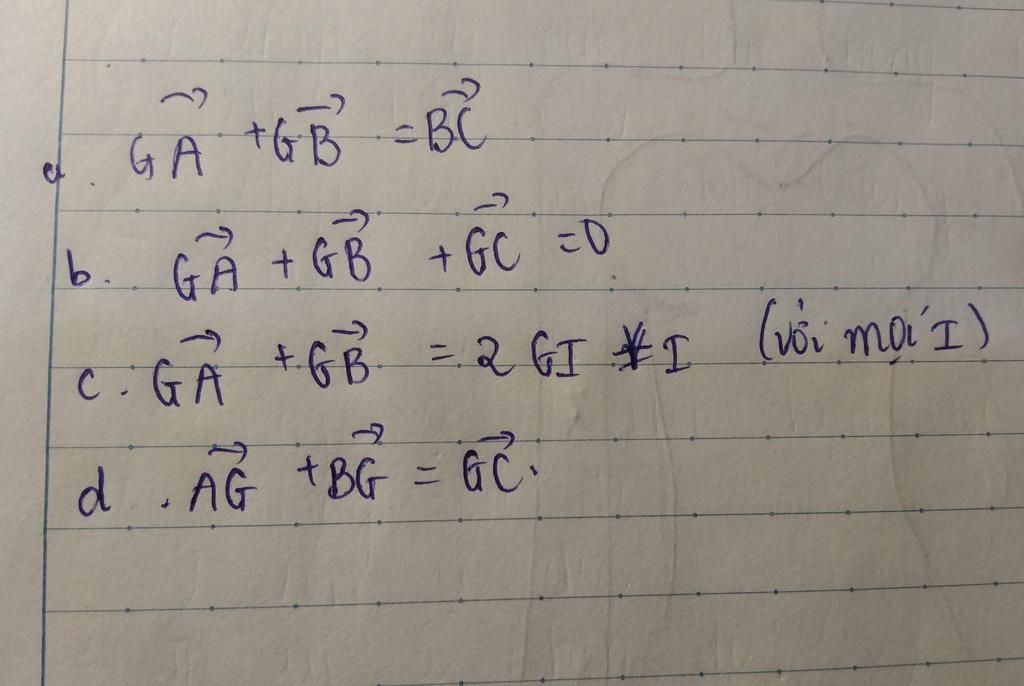 a. G\vec{A} + G\vec{B} = B\vec{C}
b. G\vec{A} + G\vec{B} + \vec{GC} = 0
c. G\vec{A} + G\vec{B} = 2 GI ∀ I (với mọi I)
d. \vec{AG} + \vec{BG} = \vec{GC}.